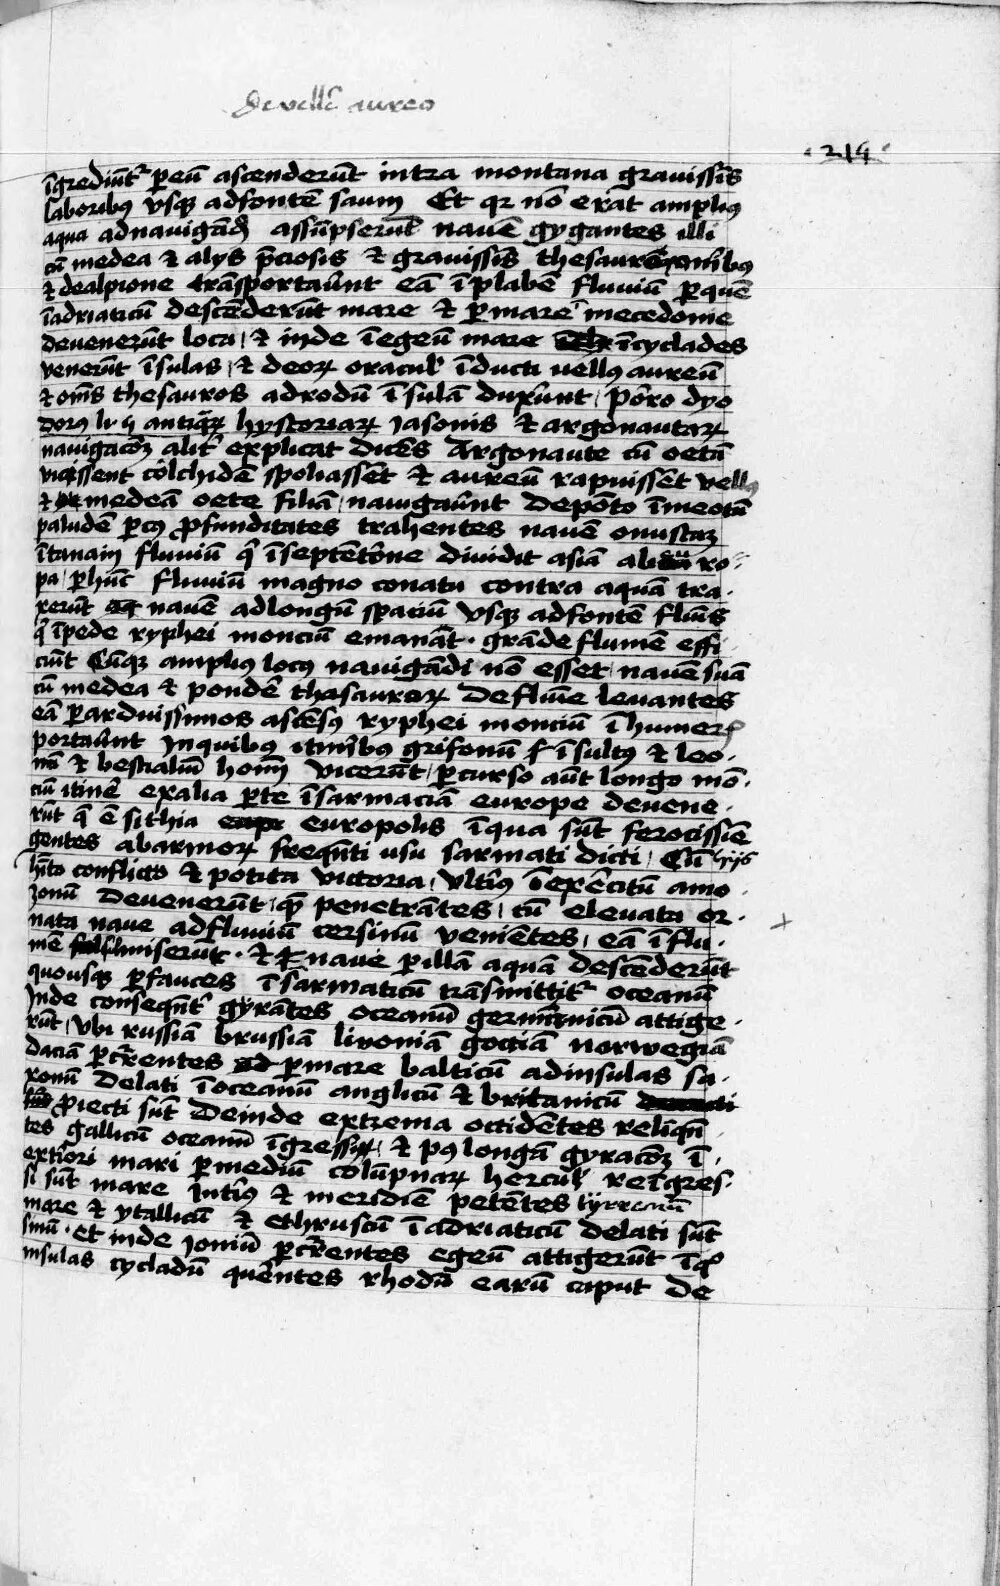 De vellē aureo
· 214 ·
īgrediūt᷑ ꝑ eū ascenderūt intra montana grauissis̄
laboribꝰ vsqꝫ ad fontē sauuȝ Et qꝛ nō erāt amplius
aqua ad nauigād᷒ assūpserūt nauē gygantes illi
cū medea ⁊ alijs p̄ciosis ⁊ grauissis̄ thesaur
⁊ de alpione trāsportaūnt eā ī plabē fluuiū ꝑ quē
ī adriaticū descēderūt mare ⁊ ꝑ mare mecedonie
deuenerūt loca / ⁊ inde ī egeū mare ī cyclades
venerūt īsulas / ⁊ deoꝝ oracul᷑ īducti vellus aureū
⁊ om̄s thesauros ad rodū īsulā duxūnt / Poro dyo
dorus li ij antiqꝝ hystoriaꝝ Jasonis ⁊ argonautaꝝ
nauigacōꝫ alit᷑ explicat dicēs Argonaute cū oetā
vicissent colchidē spoliassēt ⁊ aureū rapuissēt vellꝰ
⁊ medeā oete filiā / nauigaūnt de pōto ī meotū
paludē ꝑ eiꝰ ꝓfunditates trahentes nauē onustaȝ
ī tanaim fluuiū q̄ ī septētōne diuidit asiā ab ro⸗
pa / ꝑ hūc fluuiū magno conatu contra aquā tra⸗
xerūt nauē ad longū spaciū vsqꝫ ad fontē flūis
q̄ ī pede ryphei monciū emanāt · grāde flumē effi
ciūt Cūqꝫ amplius locꝰ nauigādi nō esset nauē suā
cū medea ⁊ pondē thesauroꝝ de flūie leuantes
eā ꝑ arduissimos ascēsꝰ ryphei monciū ī humer᷒
portaūnt In quibꝰ itīnbꝰ grifonū ⁊ īsultꝰ ⁊ leo⸗
nū ⁊ bestialiū hoīm vicerūt / ꝑ curso aūt longo mō⸗
ciū itinē ex alia ꝑte ī sarmaciā europe deuene⸗
rūt q̄ ē sithia europolis ī qua sūt ferocissiē
gentes ab armoꝝ freqūti usu sarmati dicti / Cū hijs
hīto conflictō ⁊ potita victoria / vltīꝰ ī exēcitū amo⸗
zonū deuenerūt / quē penetrātes / cū eleuata or⸗
nata naue ad fluuiū cersinū venietes / eā ī flu⸗
mē miserūt · ⁊ naue ꝑ illā aquā descēderūt
quousqꝫ ꝑ fauces ī sarmaticū trāsmittit᷑ oceanū
Inde conseqūt᷑ gyrātes oceanū germanicū attige⸗
rūt / vbi russiā brussiā liuoniā gociā norwegiā
daciā ꝑcr̄entes ꝑ mare balticū ad insulas sa⸗
xonū delati ī oceanū anglicū ⁊ britanicū
ꝓiecti sūt Deinde extrema occidētes relīqn̄
tes gallicū oceanū īgressi / ⁊ pꝰ longā gyracōꝫ ī
exteriori mari ꝑ mediū colūpnaꝝ hercul᷑ reīgres⸗
si sūt mare Intīꝰ ⁊ meridiē petētes tyrrenum
mare ⁊ ytallicū ⁊ ethruscū ī adriaticū delati sūt
sinū · et inde Joniū ꝑcr̄entes egeū attigerūt ī q᷒
insulas cycladū quērtes rhodū earū caput de